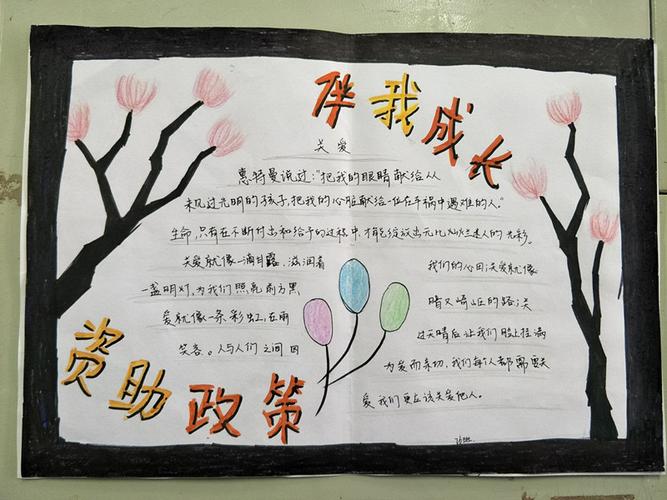 资助政策
伴我成长
关爱
惠特曼说过:"把我的眼睛献给从
未见过光明的孩子,把我的心脏献给一位在车祸中遇难的人。"
生命,只有在不断付出和给予的过程中,才能绽放出无比灿烂迷人的光彩。
关爱就像一滴甘露,滋润着 我们的心田关爱就像
一盏明灯,为我们照亮前方黑 暗又崎岖的路关
爱就像一条彩虹,在雨 过天晴后让我们脸上挂满
笑容。人与人们之间因 为爱而亲切,我们每个人都需要关
爱我们更应该关爱他人。